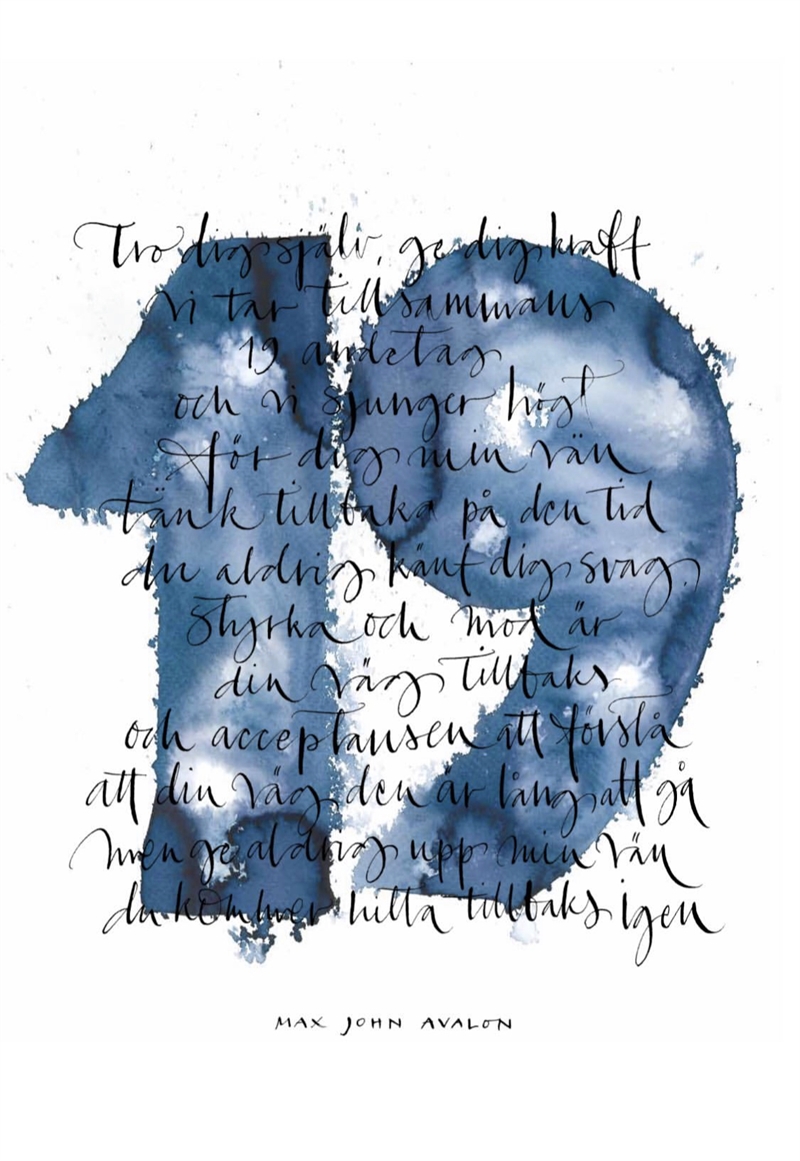 Tro dig själv, ge dig kraft
vi tar tillsammans
19 andetag
och vi sjunger högt
för dig min vän
tänk tillbaka på den tid
du aldrig känt dig svag.
Styrka och mod är
din väg tillbaks
och acceptansen att förstå
att din väg den är lång att gå
men ge aldrig upp min vän
du kommer hitta tillbaks igen
MAX JOHN AVALON